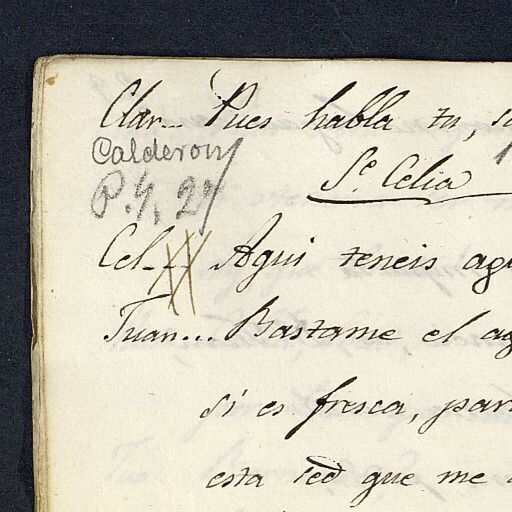 Clar... Pues habla tu,
Calderon
P. 4, 27
Se Celia
Cel... Aqui teneis
Juan... Bastame el
si es fresca,
esta sed que me